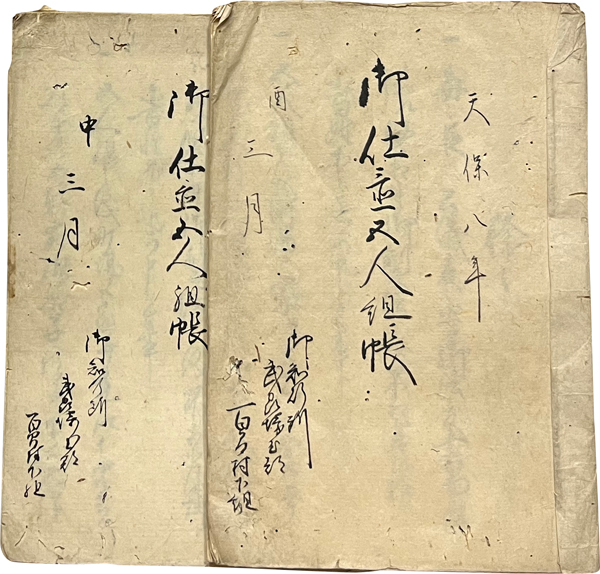 天保八年
御仕置五人組帳
酉
三月
御知行所
武州埼玉郡
百間村下組
御仕置五人組帳
申
三月
御知行所
武州埼玉郡
百間村下組